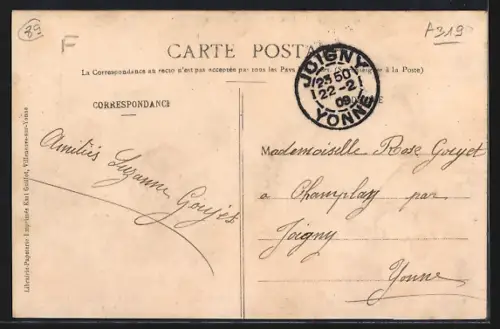 89
F
A319
CARTE POSTA
La Correspondance au recto n'est pas acceptée par tous les Pays à la Poste)
JOIGNY
23 50
22-2
09
YONNE
CORRESPONDANCE
Amitiés Suzanne
Goujet
Mademoiselle Rose Goujet
a Champlay par
Joigny
Yonne
Librairie-Papeterie Imprimerie Villeneuve-sur-Yonne